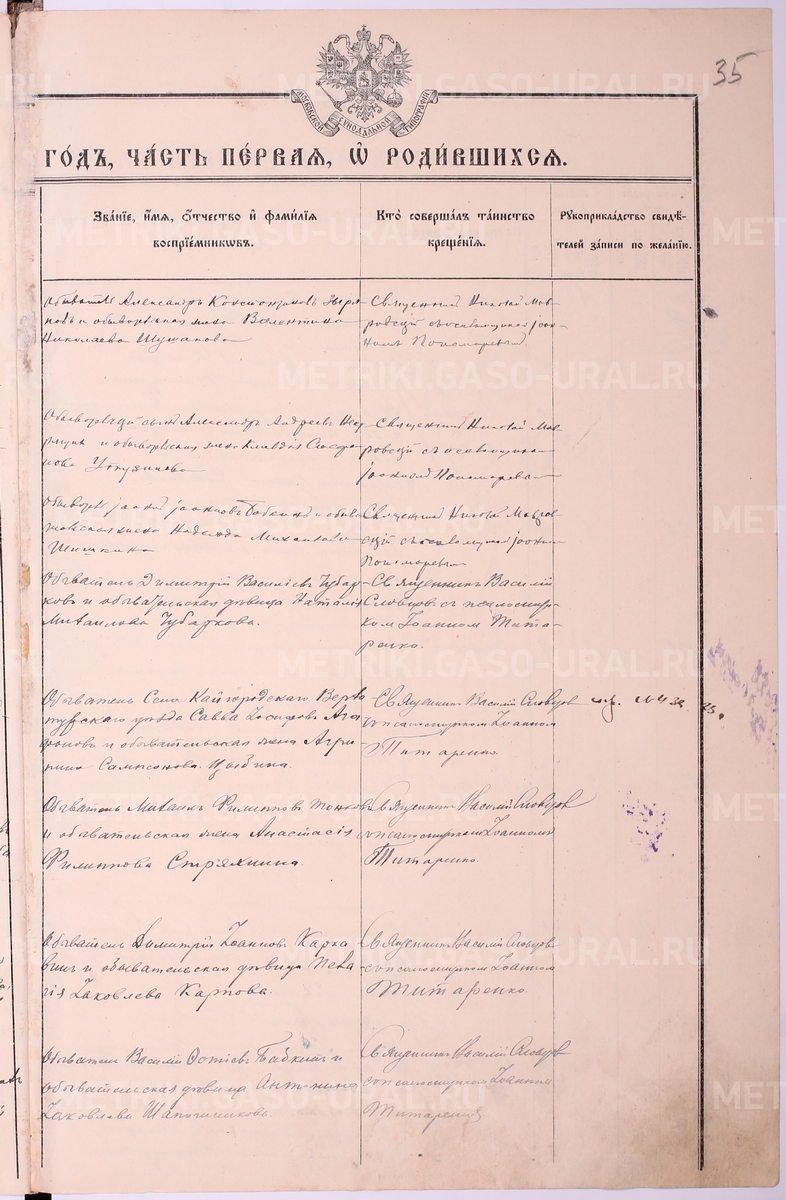 35
МОСКОВСКОЙ СѴНОДАЛЬНОЙ ТИПОГРАФІИ
ГОДЪ, ЧАСТЬ ПЕРВАЯ, Ѡ РОДИВШИХСЯ.
Званіе, имя, отчество и фамилія воспріемниковъ.
Кто совершалъ таинство крещенія.
Рукоприкладство свидѣтелей записи по желанію.
Обыватель Александръ Константиновъ
и обывательская жена Валентина
Николаева
Священникъ Николай Мав-
ровскій съ псаломщикомъ Іоан-
номъ Пономаревымъ
Обывательскій сынъ Александръ Андреевъ
и обывательская жена Клавдія
Священникъ Николай Мав-
ровскій съ псаломщикомъ
Іоанномъ Пономаревымъ
Іоаннъ Іоанновъ Бабкинъ и обыва-
тельская жена Надежда Михаилова
Шишкина
Священникъ Николай Мавров-
скій съ псаломщикомъ Іоанномъ
Пономаревымъ
Обыватель Димитрій Васильевъ Чубар-
ковъ и обывательская дѣвица Наталія
Михаилова Чубаркова.
Священникъ Василій
Словцовъ съ псаломщи-
комъ Іоанномъ Тита-
ренко.
Обыватель Села Кайгородскаго Верхо-
турскаго уѣзда Савва Іосифовъ Ага-
фоновъ и обывательская жена Агрип-
пина Сампсонова Цыбина.
Священникъ Василій Словцовъ
съ псаломщикомъ Іоанномъ
Титаренко.
Обыватель Михаилъ Филипповъ
и обывательская жена Анастасія
Филиппова Стряхнина.
Священникъ Василій Словцовъ
съ псаломщикомъ Іоанномъ
Титаренко.
Обыватель Димитрій Іоанновъ Карка-
винъ и обывательская дѣвица Пела-
гія Іаковлева Карпова.
Священникъ Василій Словцовъ
съ псаломщикомъ Іоанномъ
Титаренко.
Обыватель Василій Фотіевъ Бабкинъ и
обывательская дѣвица Антонина
Іаковлева Шапошникова.
Священникъ Василій Словцовъ
съ псаломщикомъ Іоанномъ
Титаренко
METRIKI.GASO-URAL.RU